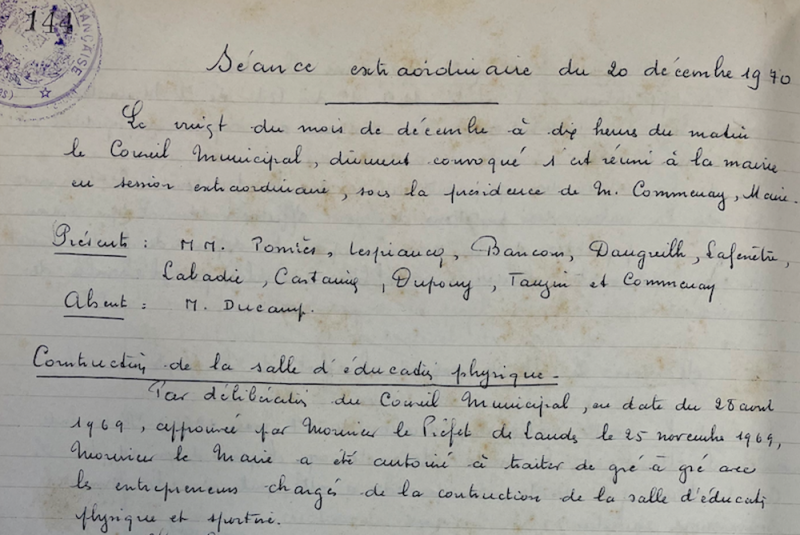 144
FRANÇAISE
Séance extraordinaire du 20 décembre 1970
Le vingt du mois de décembre à dix heures du matin
le Conseil Municipal, dûment convoqué s'est réuni à la mairie
en session extraordinaire, sous la présidence de M. Commenay, Maire.
Présents : MM. Pomiès, Lespiaucq, Bancons, Daugreilh, Lafenêtre,
Labadie, Castaing, Dupouy, Tauzin et Commenay
Absent : M. Ducamp.
Construction de la salle d'éducation physique.
Par délibération du Conseil Municipal, en date du 28 avril
1969, approuvée par Monsieur le Préfet des Landes le 25 novembre 1969,
Monsieur le Maire a été autorisé à traiter de gré à gré avec
les entrepreneurs chargés de la construction de la salle d'éducation
physique et sportive.